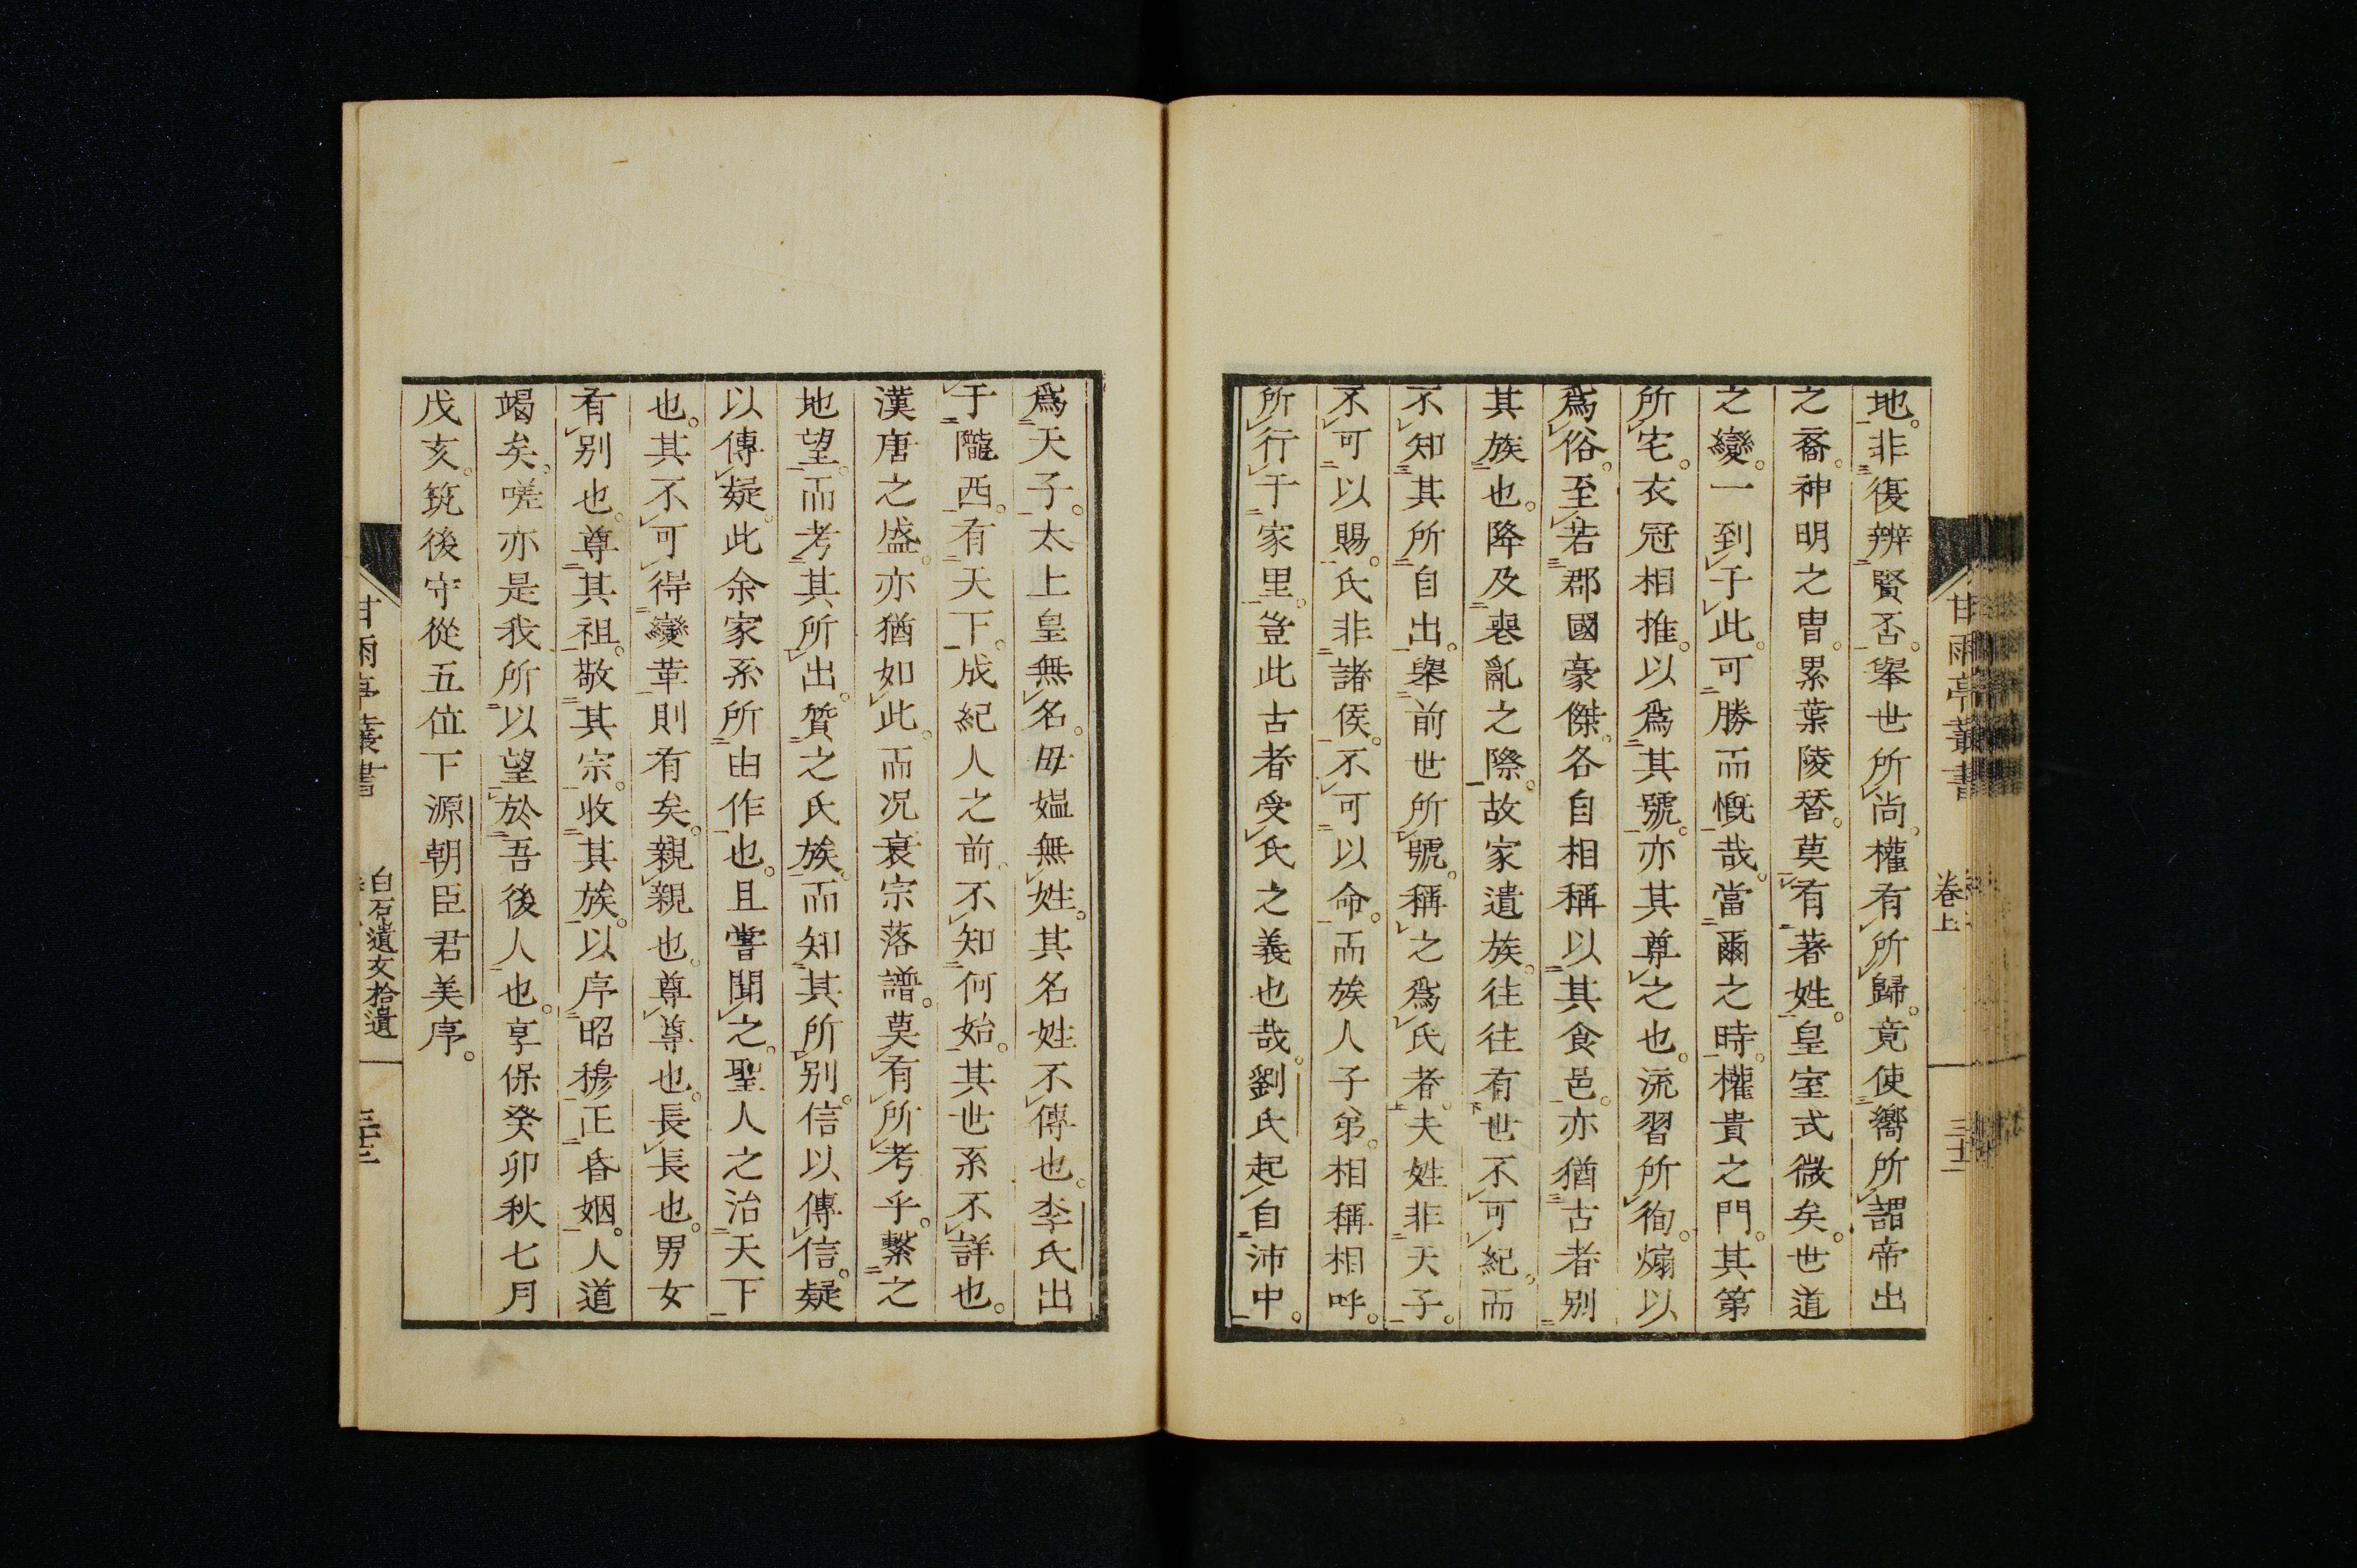 地。非復辨賢否。舉世所尚。權有所歸。竟使嚮所謂帝出
之裔。神明之冑。累葉陵替。莫有著姓。皇室式微矣。世道
之變。一到于此。可勝而慨哉。當爾之時。權貴之門。其第
所宅。衣冠相推。以爲其號。亦其尊之也。流習所徇。煽以
爲俗。至若郡國豪傑。各自相稱以其食邑。亦猶古者別
其族也。降及喪亂之際。故家遺族。往往有世不可紀。而
不知其所自出。舉前世所號。稱之爲氏者。夫姓非天子。
不可以賜。氏非諸侯。不可以命。而族人子弟。相稱相呼。
所行于家里。豈此古者受氏之義也哉。劉氏起自沛中。
甘雨亭叢書
卷上
三十二
爲天子。太上皇無名。母媼無姓。其名姓不傳也。李氏出
于隴西。有天下。成紀人之前。不知何始。其世系不詳也。
漢唐之盛。亦猶如此。而况衰宗落譜。莫有所考乎。繫之
地望。而考其所出。質之氏族。而知其所別。信以傳信。疑
以傳疑。此余家系所由作也。且嘗聞之。聖人之治天下
也。其不可得變革則有矣。親親也。尊尊也。長長也。男女
有別也。尊其祖。敬其宗。收其族。以序昭穆。正昏姻。人道
竭矣。嗟亦是我所以望於吾後人也。享保癸卯秋七月
戊亥。筑後守從五位下源朝臣君美序。
甘雨亭叢書
白石遺文拾遺